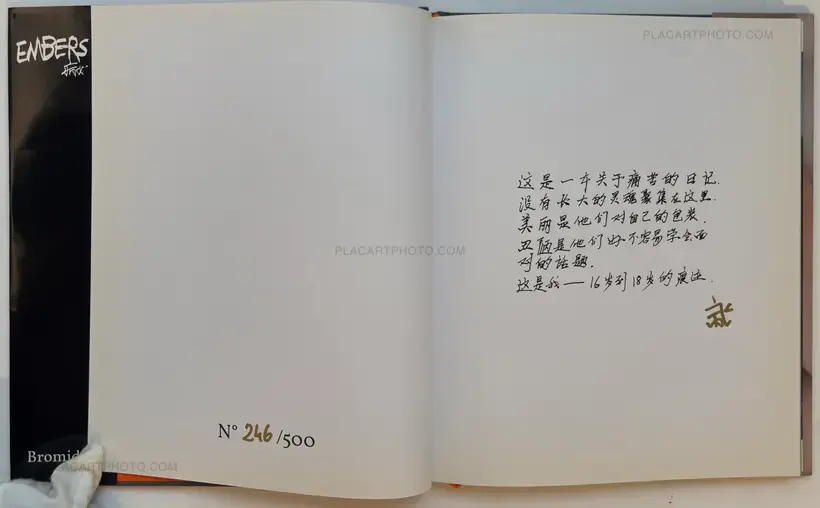 EMBERS
Bromid
N° 246/500
这是一本关于痛苦的日记.
没有长大的灵魂聚集在这里.
美丽是他们对自己的包装.
丑陋是他们好不容易学会面
对的话题.
这是我——16岁到18岁的痕迹.
PLACARTPHOTO.COM
PLACARTPHOTO.COM
PLACARTPHOTO.COM